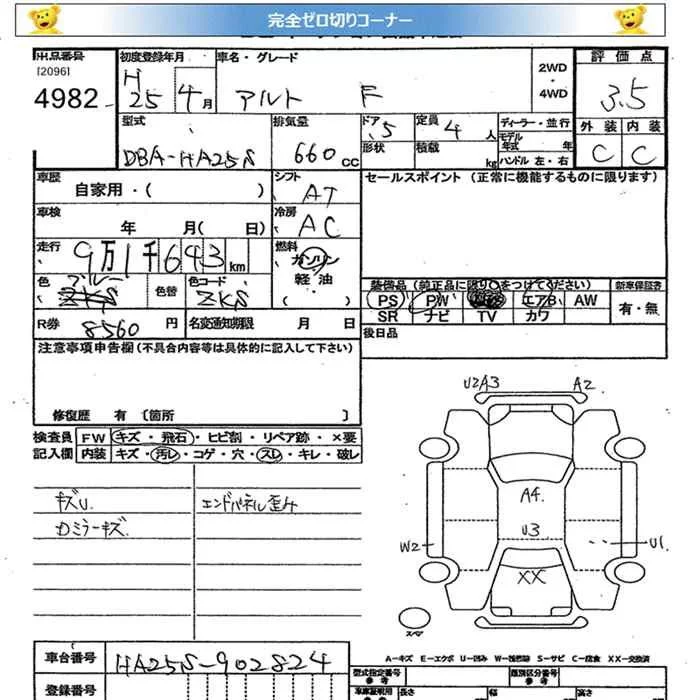 完全ゼロ切りコーナー
出品番号 初度登録年月 車名・グレード 2WD 評価点
[2096] H ・
4982 25 4月 アルト F 4WD 3.5
型式 排気量 ドア 定員 ディーラー・並行 外装 内装
DBA-HA25S 660cc 5 4人 モデル年式 年 C C
形状 積載 kg ハンドル 左・右
車歴 シフト セールスポイント(正常に機能するものに限ります)
自家用・( ) AT
車検 冷房
年 月( 日) AC
走行 燃料
9万1千643km ガソリン
軽油
色 ブルー 色替 色コード ( 装備品(前正品に限り○をつけてください) 新車保証書
ZKS ZKS PS PW エアB AW 有・無
R券 8560円 名変通知期限 月 日 SR ナビ TV カワ
後日品
注意事項申告欄(不具合内容等は具体的に記入して下さい)
修復歴 有 〔箇所 〕
検査員 FW キズ・飛石・ヒビ割・リペア跡・×要
記入欄 内装 キズ・汚レ・コゲ・穴・スレ・キレ・破レ
キズU. エンドパネル歪み
ミラーキズ.
U2A3 A2
A4
U3
W2 U1
XX
スペア
A-キズ E-エクボ U-凹み S-サビ C-腐食 XX-交換済
車台番号 HA25S-902824 型式指定番号 類別区分番号
参考 参考
登録番号 長さ 幅 高さ
参考